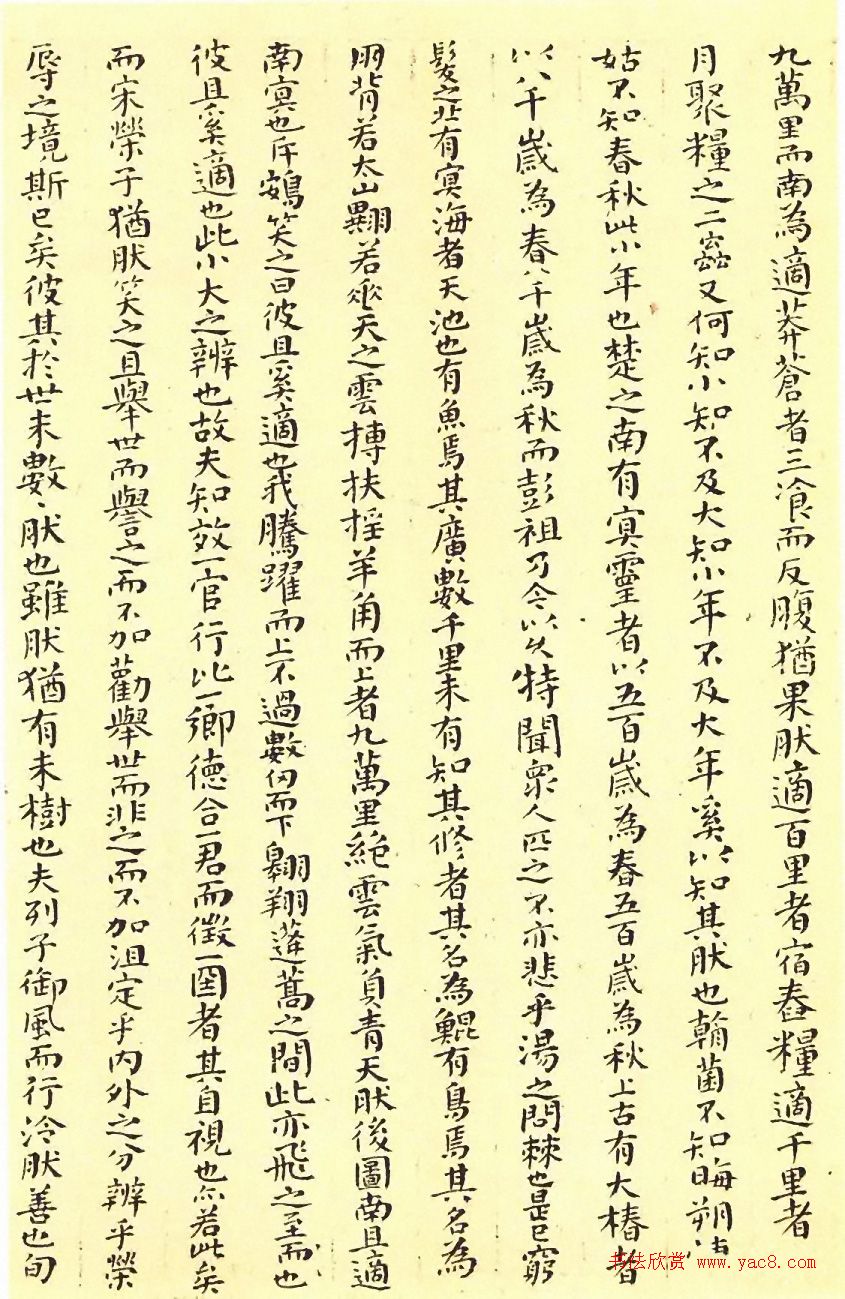 九萬里而南為適莽蒼者三飡而反腹猶果肰適百里者宿舂糧適千里者
月聚糧之二蟲又何知小知不及大知小年不及大年奚以知其肰也朝菌不知晦朔
姑不知春秋此小年也楚之南有冥靈者以五百歲為春五百歲為秋上古有大椿者
以八千歲為春八千歲為秋而彭祖乃今以久特聞衆人匹之不亦悲乎湯之問棘也是已窮
髮之北有冥海者天池也有魚焉其廣數千里未有知其修者其名為鯤有鳥焉其名為
朋背若太山翼若垂天之雲搏扶搖羊角而上者九萬里絕雲氣負青天肰後圖南且適
南冥也斥鴳笑之曰彼且奚適也我騰躍而上不過數仞而下翱翔蓬蒿之間此亦飛之至而也
彼且奚適也此小大之辨也故夫知效一官行比一鄉德合一君而徵一國者其自視也亦若此矣
而宋榮子猶肰笑之且舉世而譽之而不加勸舉世而非之而不加沮定乎內外之分辨乎榮
辱之境斯已矣彼其於世未數〻肰也雖肰猶有未樹也夫列子御風而行泠肰善也旬
书法欣赏 www.yac8.com